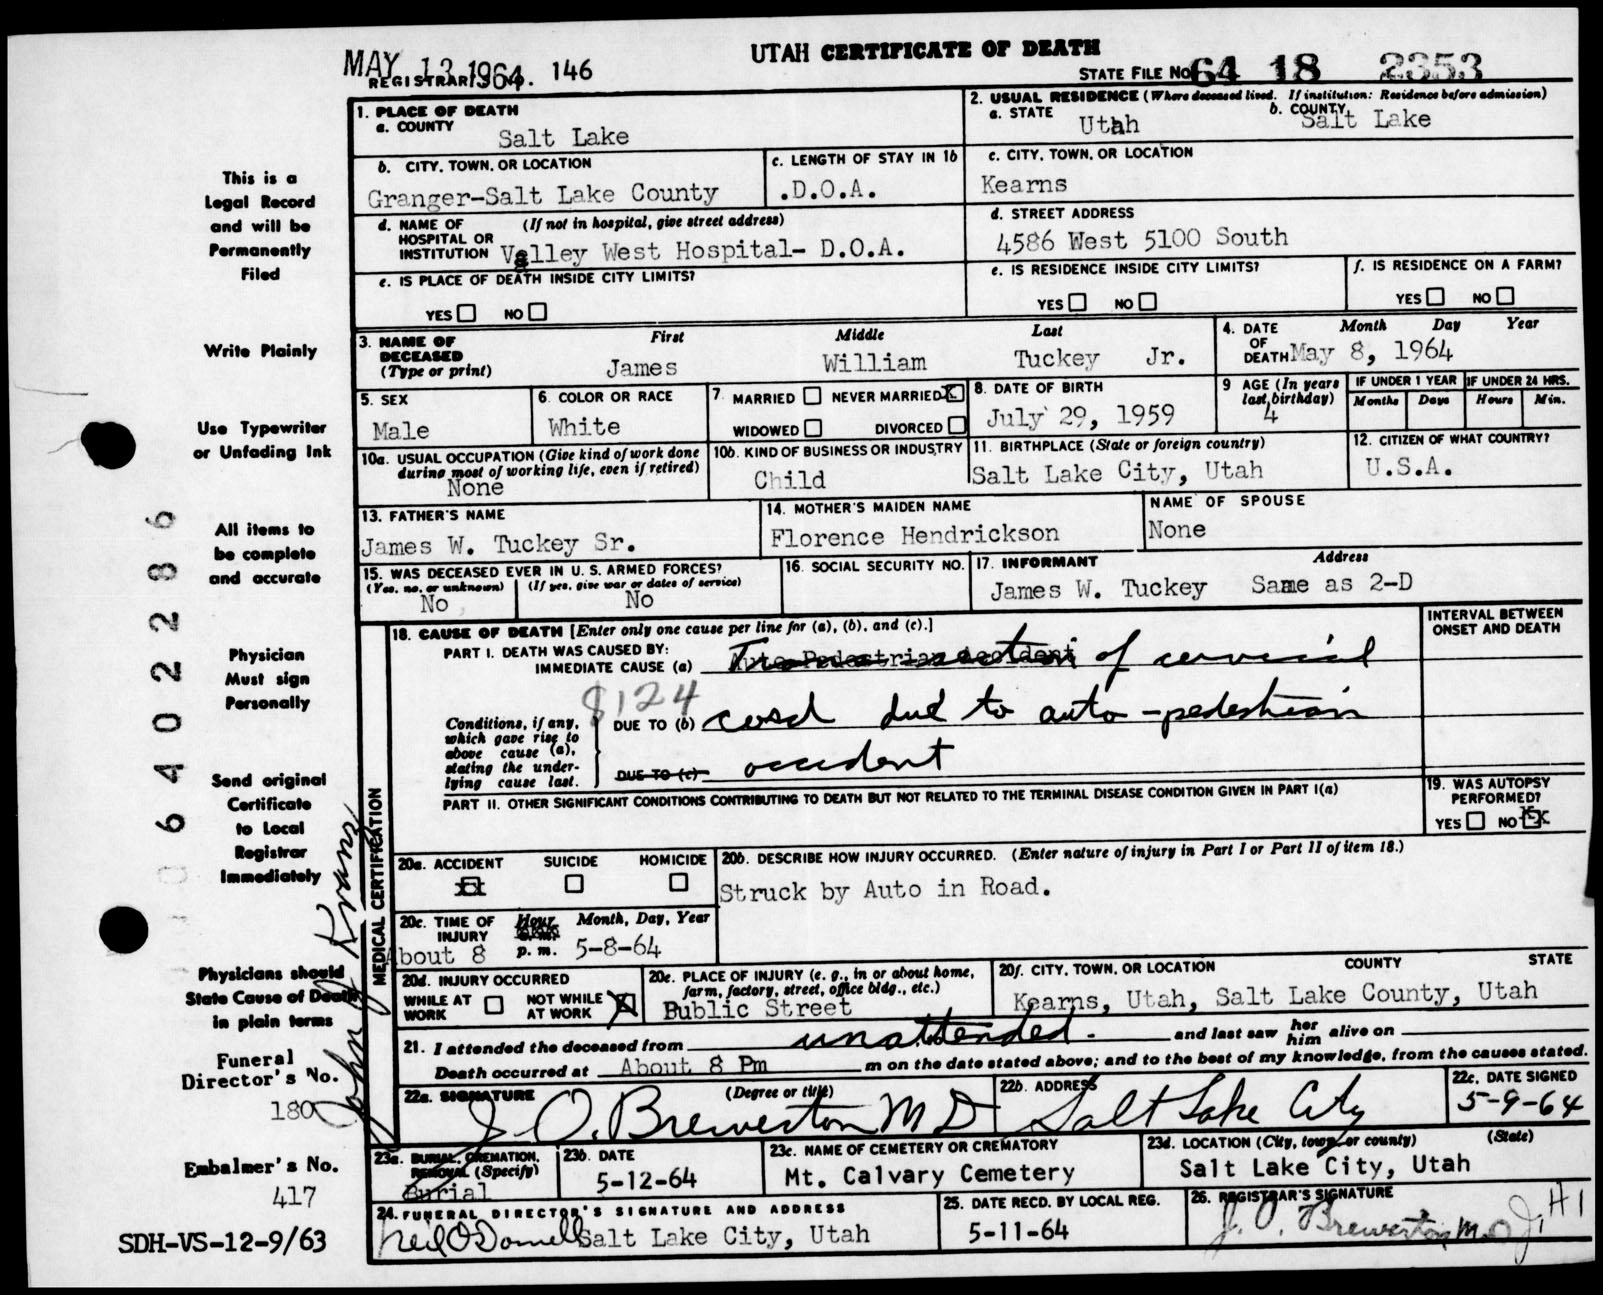 UTAH CERTIFICATE OF DEATH
MAY 13 1964
REGISTRAR'S NO. 146
STATE FILE NO. 64 18 2353
1. PLACE OF DEATH
a. COUNTY
Salt Lake
2. USUAL RESIDENCE (Where deceased lived. If institution: Residence before admission)
a. STATE
Utah
b. COUNTY
Salt Lake
b. CITY, TOWN, OR LOCATION
Granger-Salt Lake County
c. LENGTH OF STAY IN 1b
.D.O.A.
c. CITY, TOWN, OR LOCATION
Kearns
d. NAME OF HOSPITAL OR INSTITUTION (If not in hospital, give street address)
Valley West Hospital- D.O.A.
d. STREET ADDRESS
4586 West 5100 South
e. IS PLACE OF DEATH INSIDE CITY LIMITS?
YES NO
e. IS RESIDENCE INSIDE CITY LIMITS?
YES NO
f. IS RESIDENCE ON A FARM?
YES NO
3. NAME OF DECEASED (Type or print)
First Middle Last
James William Tuckey Jr.
4. DATE OF DEATH Month Day Year
May 8, 1964
5. SEX
Male
6. COLOR OR RACE
White
7. MARRIED NEVER MARRIED X
WIDOWED DIVORCED
8. DATE OF BIRTH
July 29, 1959
9 AGE (In years last birthday)
4
IF UNDER 1 YEAR
Months Days
IF UNDER 24 HRS.
Hours Min.
10a. USUAL OCCUPATION (Give kind of work done during most of working life, even if retired)
None
10b. KIND OF BUSINESS OR INDUSTRY
Child
11. BIRTHPLACE (State or foreign country)
Salt Lake City, Utah
12. CITIZEN OF WHAT COUNTRY?
U.S.A.
13. FATHER'S NAME
James W. Tuckey Sr.
14. MOTHER'S MAIDEN NAME
Florence Hendrickson
NAME OF SPOUSE
None
15. WAS DECEASED EVER IN U. S. ARMED FORCES?
(Yes, no, or unknown) (If yes, give war or dates of service)
No No
16. SOCIAL SECURITY NO.
17. INFORMANT Address
James W. Tuckey Same as 2-D
MEDICAL CERTIFICATION
18. CAUSE OF DEATH [Enter only one cause per line for (a), (b), and (c).]
INTERVAL BETWEEN ONSET AND DEATH
PART I. DEATH WAS CAUSED BY:
IMMEDIATE CAUSE (a) Auto Pedestrian Accident Transection of cervical
8124
Conditions, if any, which gave rise to above cause (a), stating the underlying cause last.
DUE TO (b) cord due to auto-pedestrian
DUE TO (c) accident
PART II. OTHER SIGNIFICANT CONDITIONS CONTRIBUTING TO DEATH BUT NOT RELATED TO THE TERMINAL DISEASE CONDITION GIVEN IN PART I(a)
19. WAS AUTOPSY PERFORMED?
YES NO X
20a. ACCIDENT SUICIDE HOMICIDE
20b. DESCRIBE HOW INJURY OCCURRED. (Enter nature of injury in Part I or Part II of item 18.)
Struck by Auto in Road.
20c. TIME OF INJURY Hour Month, Day, Year
About 8 p. m. 5-8-64
20d. INJURY OCCURRED
WHILE AT WORK NOT WHILE AT WORK X
20e. PLACE OF INJURY (e. g., in or about home, farm, factory, street, office bldg., etc.)
Public Street
20f. CITY, TOWN, OR LOCATION COUNTY STATE
Kearns, Utah, Salt Lake County, Utah
21. I attended the deceased from unattended - and last saw her him alive on
Death occurred at About 8 Pm m on the date stated above; and to the best of my knowledge, from the causes stated.
22a. SIGNATURE (Degree or title)
J. O. Brewerton MD
22b. ADDRESS
Salt Lake City
22c. DATE SIGNED
5-9-64
23a. BURIAL, CREMATION, REMOVAL (Specify)
Burial
23b. DATE
5-12-64
23c. NAME OF CEMETERY OR CREMATORY
Mt. Calvary Cemetery
23d. LOCATION (City, town, or county) (State)
Salt Lake City, Utah
24. FUNERAL DIRECTOR'S SIGNATURE AND ADDRESS
Neil O'Donnell Salt Lake City, Utah
25. DATE RECD. BY LOCAL REG.
5-11-64
26. REGISTRAR'S SIGNATURE
J. O. Brewerton M.D.
This is a
Legal Record
and will be
Permanently
Filed
Write Plainly
Use Typewriter
or Unfading Ink
All items to
be complete
and accurate
Physician
Must sign
Personally
Send original
Certificate
to Local
Registrar
Immediately
Physicians should
State Cause of Death
in plain terms
Funeral
Director's No.
180
Embalmer's No.
417
SDH-VS-12-9/63
0 6 4 0 2 2 8 6
John J Kranz